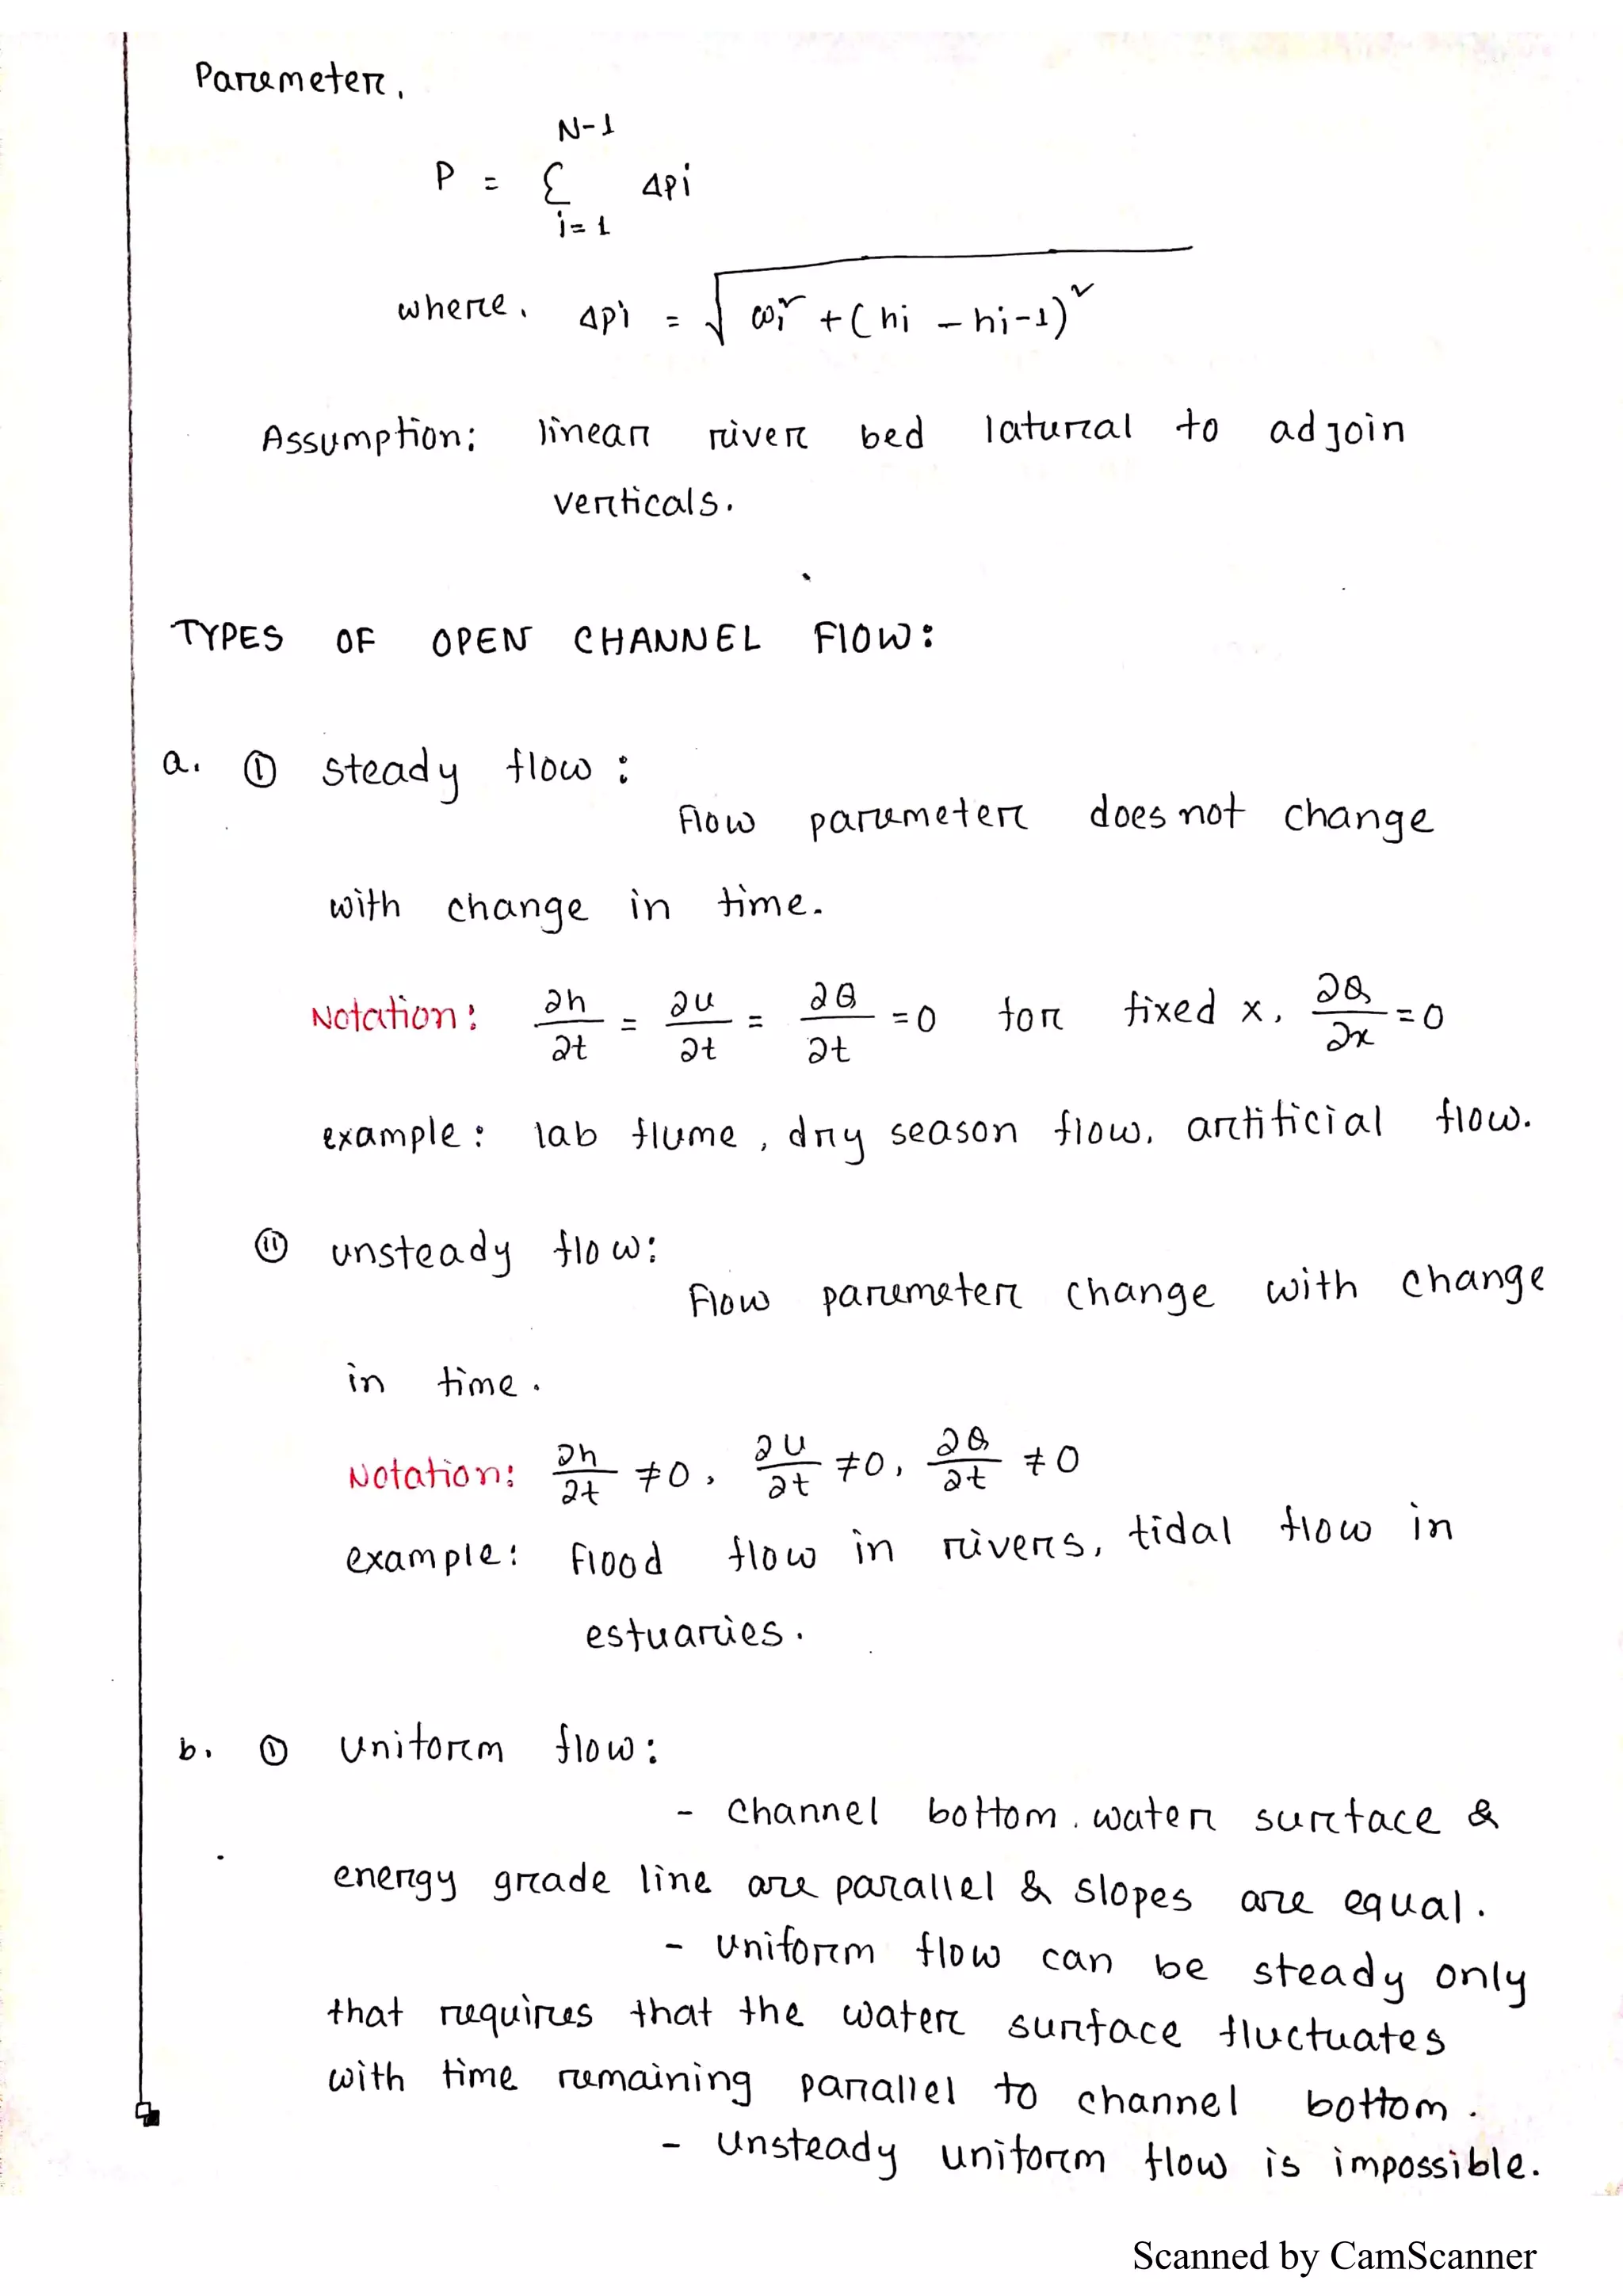 Parameter,
N-1
P = Σ Δpi
i=1
where, Δpi = √ωi² + (hi - hi-1)²
Assumption: linear river bed latural to adjoin
verticals.
TYPES OF OPEN CHANNEL FLOW:
a. ⓘ steady flow :
Flow parameter does not change
with change in time.
Notation: ∂h/∂t = ∂u/∂t = ∂Q/∂t = 0 for fixed x, ∂Q/∂x = 0
example: lab flume, dry season flow, artificial flow.
ⓘⓘ unsteady flow:
Flow parameter change with change
in time.
Notation: ∂h/∂t ≠ 0, ∂u/∂t ≠ 0, ∂Q/∂t ≠ 0
example: Flood flow in rivers, tidal flow in
estuaries.
b. ⓘ Uniform flow:
- Channel bottom, water surface &
energy grade line are parallel & slopes are equal.
- Uniform flow can be steady only
that requires that the water surface fluctuates
with time remaining parallel to channel bottom.
- Unsteady uniform flow is impossible.
Scanned by CamScanner